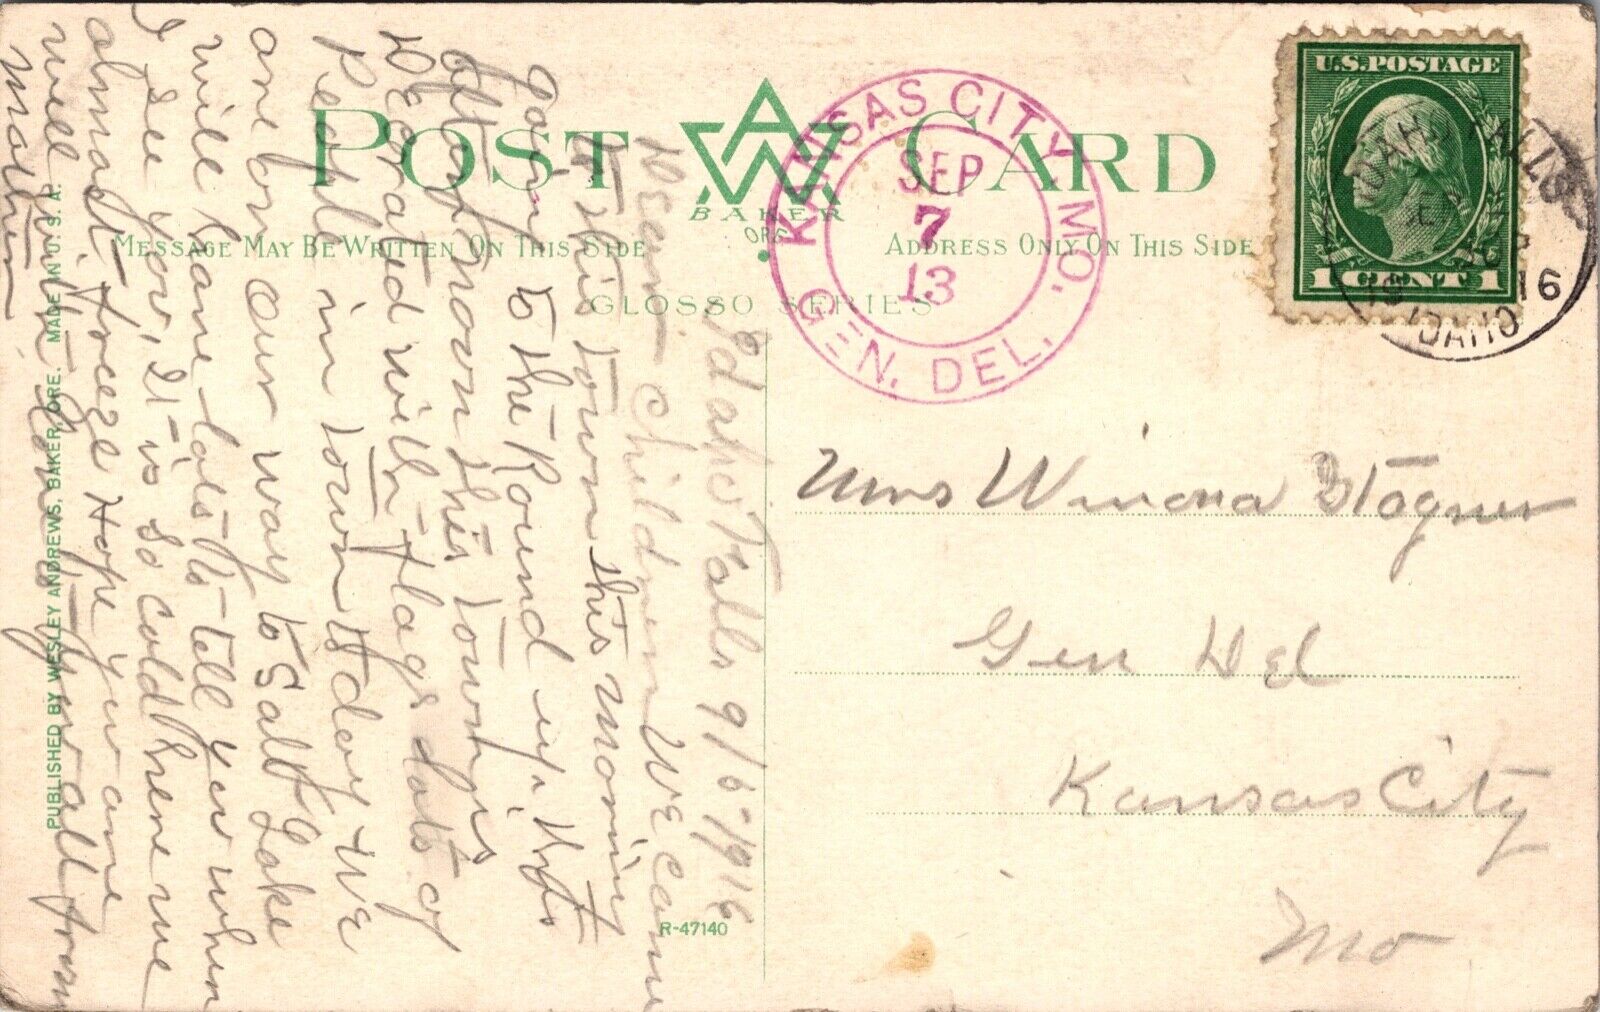 POST CARD
BAKER
ORE.
MESSAGE MAY BE WRITTEN ON THIS SIDE
ADDRESS ONLY ON THIS SIDE
GLOSSO SERIES
KANSAS CITY, MO.
SEP
7
13
GEN. DEL.
U.S. POSTAGE
1 CENT 1
IDAHO FALLS
IDAHO
16
Mrs Winona Stogner
Gen Del
Kansas City
Mo
Idaho Falls 9/6-1916
Dear children We came
to this town this morning
going to the Round up this
afternoon this town is
Decorated with Flags lots of
People in town to day we
are on our way to Salt Lake
will have lots to tell you when
I see you, it is so cold here we
almost freeze Hope you are
well with love to you all from
mother
PUBLISHED BY WESLEY ANDREWS, BAKER, ORE. MADE IN U.S.A.
R-47140